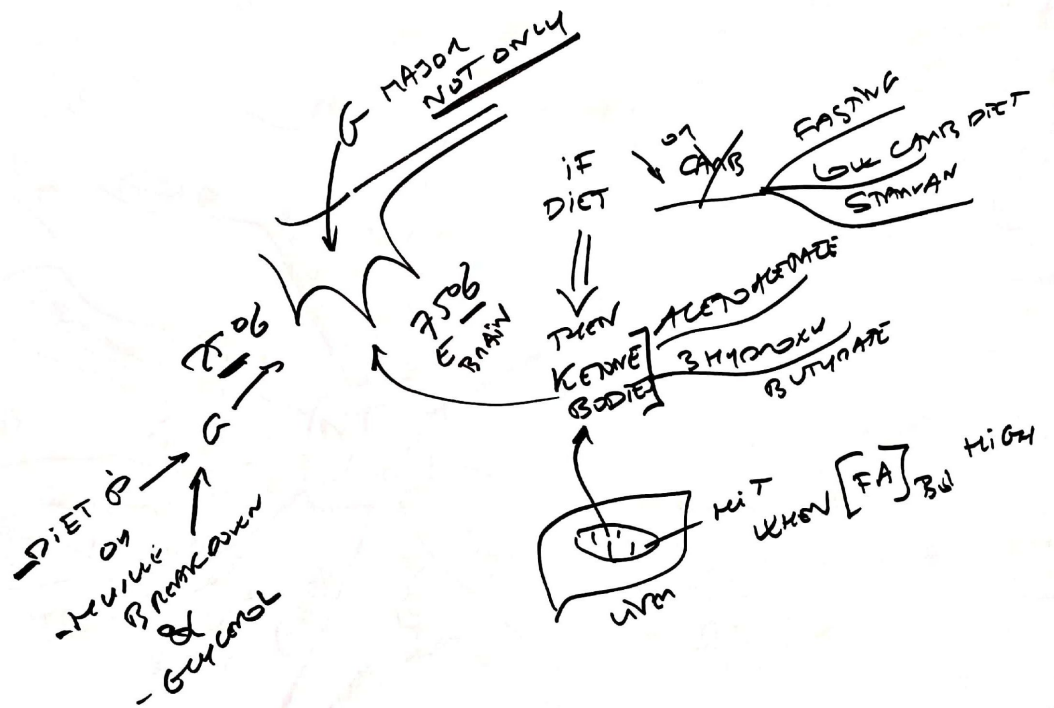 G MAJOR
NOT ONLY
IF
DIET
↓ OR
CARB
FASTING
LOW CARB DIET
STARVAN
THEN
KETONE
BODIES
ACETOACETATE
B HYDROXY
BUTYRATE
75%
E
BRAIN
25%
G
- DIET P
OR
- MUSCLE
BREAKDOWN
&
- GLYCEROL
LIVER
MIT
WHEN [FA] Bld HIGH